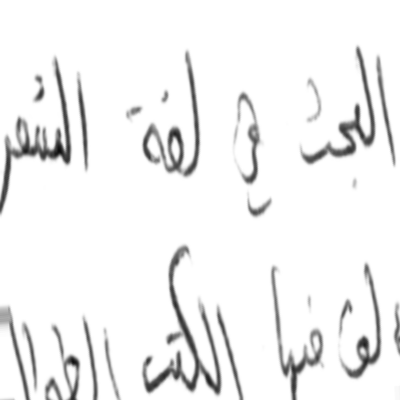 البحث في لغة الشعر
لف فيها الكتب الطوال